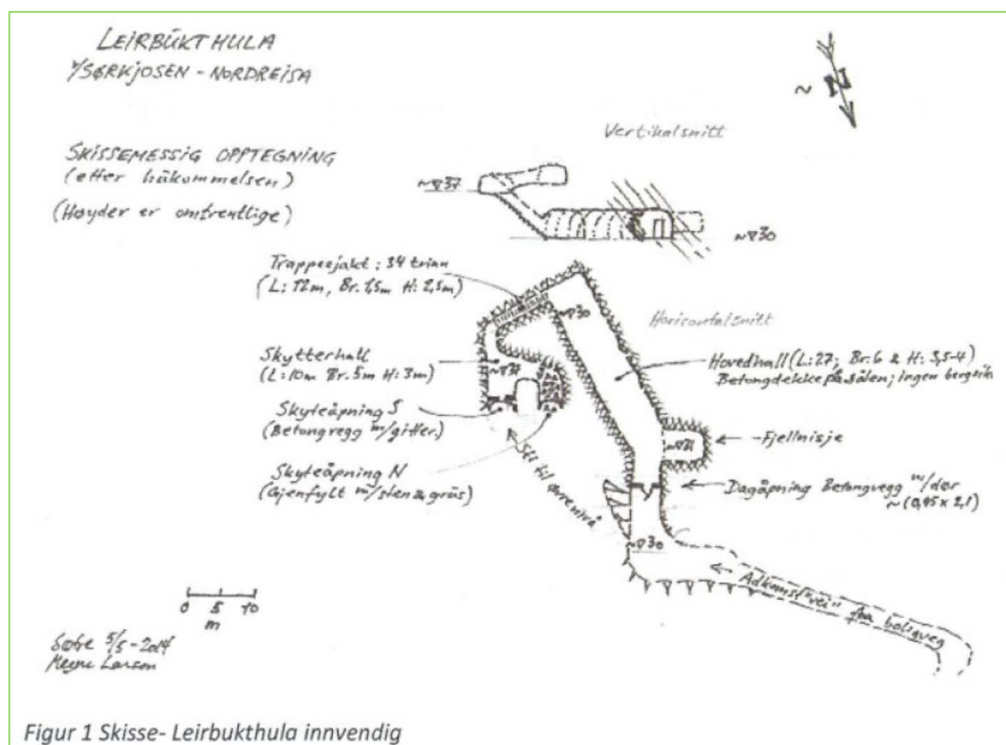 LEIRBUKTHULA
v/SØRKJOSEN - NORDREISA
~ N
Vertikalsnitt
SKISSEMESSIG OPPTEGNING
(etter hukommelsen)
(Høyder er omtrentlige)
~▽37
~▽30
Trappesjakt: 34 trinn
(L: 12m, Br. 1,5m H: 2,5m)
~▽30
Horisontalsnitt
Skytterhall
(L: 10m Br. 5m H: 3m)
~▽37
Hovedhall (L: 27, Br: 6 & H: 3,5-4)
Betongdekke på sålen; ingen
Skyteåpning S
(Betongvegg m/gitter.)
Fjellnisje
Skyteåpning N
(Gjenfylt m/sten & grus)
Sti til øvre nivå
Dagåpning Betongvegg m/dør
~(0,95 x 2,1)
~▽30
Adkomst "vei" fra boligveg
0 5 10
m
5/5-2014
Larsen
Figur 1 Skisse- Leirbukthula innvendig